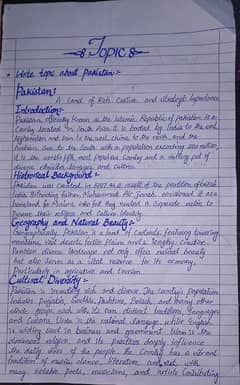 Topic
* Write topic about pakistan:-
Pakistan:-
A Land of Rich Culture and Strategic Importance
Introduction:-
Pakistan, officially known as the Islamic Republic of Pakistan, is a
country located in South Asia. It is bordered by India to the east,
Afghanistan and Iran to the west, China to the north, and the
Arabian Sea to the South. with a population exceeding 220 million,
it is the world's fifth most populous country and a melting pot of
diverse ethnicities, languages and cultures.
Historical Background:-
Pakistan was created in 1947 as a result of the partition of British
India. Its founding father, Muhammad Ali Jinnah, envisioned it as a
homeland for Muslims, who felt they needed a separate nation to
preserve their religious and cultural identity.
Geography and Natural Beauty:-
Geographically, Pakistan is a land of contrasts, featuring towering
mountains, vast deserts, fertile plains and a lengthy coastline.
Pakistan diverse landscape not only offers natural beauty
but also serves as a vital resource for its economy,
Particularly in agriculture and tourism.
Cultural Diversity:-
Pakistan is incredibly rich and diverse. The country's population
includes Punjabis, Sindhis, Pashtuns, Baloch, and many other
ethnic groups each with its own distinct traditions, languages
and customs. Urdu is the national language, while English
is widely used in business and government. Islam is the
dominant religion, and its practices deeply influence
the daily lives of the people. The Country has a vibrant
tradition of music, dance, literature and art, with
many notable poets, musicians, and artists contributing